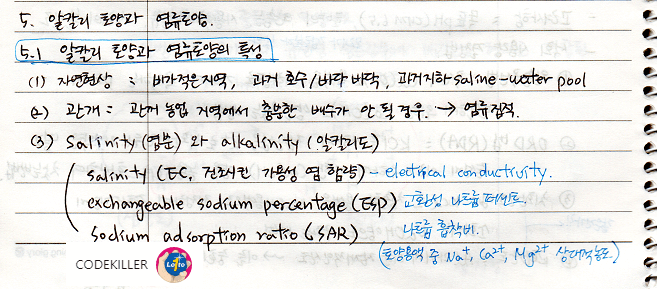 5. 알칼리 토양과 염류토양.
5.1 알칼리 토양과 염류토양의 특성
(1) 자연현상 : 비가적은지역, 과거 호수/바다 바닥, 과거지하 saline-water pool
(2) 관개 : 관개 농업 지역에서 충분한 배수가 안 될 경우. → 염류집적.
(3) Salinity (염분) 와 alkalinity (알칼리도)
salinity (EC, 건조시킨 가용성 염 함량) - electrical conductivity.
exchangeable sodium percentage (ESP) 교환성 나트륨 퍼센트.
sodium adsorption ratio (SAR) 나트륨 흡착비.
(토양용액 중 Na⁺, Ca²⁺, Mg²⁺ 상대적농도)
CODEKILLER Lotto